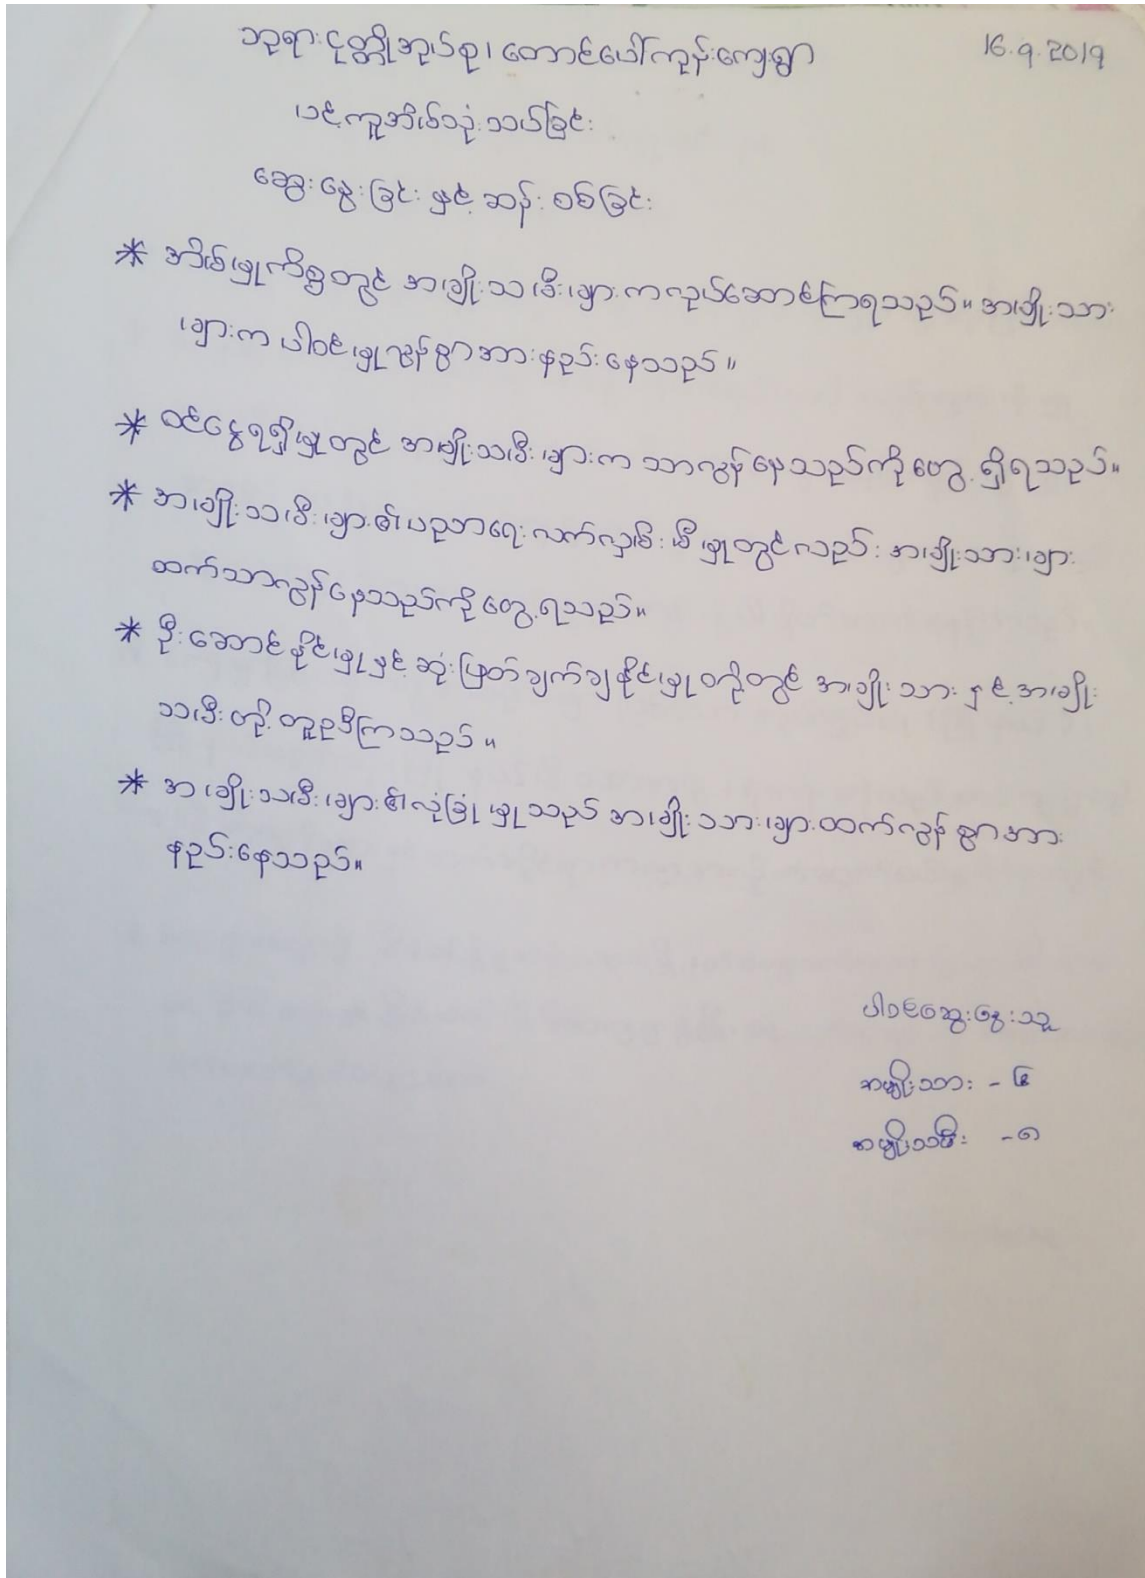 ဘုရားငုတ္တိုအုပ်စု၊ တောင်ပေါ်ကုန်းကျေးရွာ 16.9.2019
ပင့်ကူအိမ်သုံးသပ်ခြင်း
ဆွေးနွေးခြင်း နှင့် ဆန်းစစ်ခြင်း
* အိမ်မှုကိစ္စတွင် အမျိုးသမီးများကလုပ်ဆောင်ကြရသည်။ အမျိုးသား
များက ပါဝင်မှုလွန်စွာအားနည်းနေသည်။
* ဝင်ငွေရရှိမှုတွင် အမျိုးသမီးများက သာလွန်နေသည်ကိုတွေ့ရှိရသည်။
* အမျိုးသမီးများ၏ပညာရေးလက်လှမ်းမီမှုတွင်လည်း အမျိုးသားများ
ထက်သာလွန်နေသည်ကိုတွေ့ရသည်။
* ဦးဆောင်နိုင်မှုနှင့် ဆုံးဖြတ်ချက်ချနိုင်မှုတို့တွင် အမျိုးသား နှင့်အမျိုး
သမီးတို့ တူညီကြသည်။
* အမျိုးသမီးများ၏လုံခြုံမှုသည် အမျိုးသားများထက်လွန်စွာအား
နည်းနေသည်။
ပါဝင်ဆွေးနွေးသူ
အမျိုးသား -
အမျိုးသမီး -